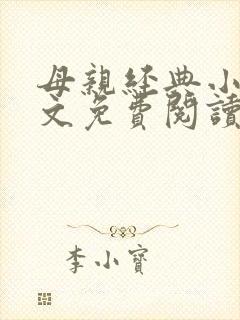 母親經典小
文免費閱讀
李小寶